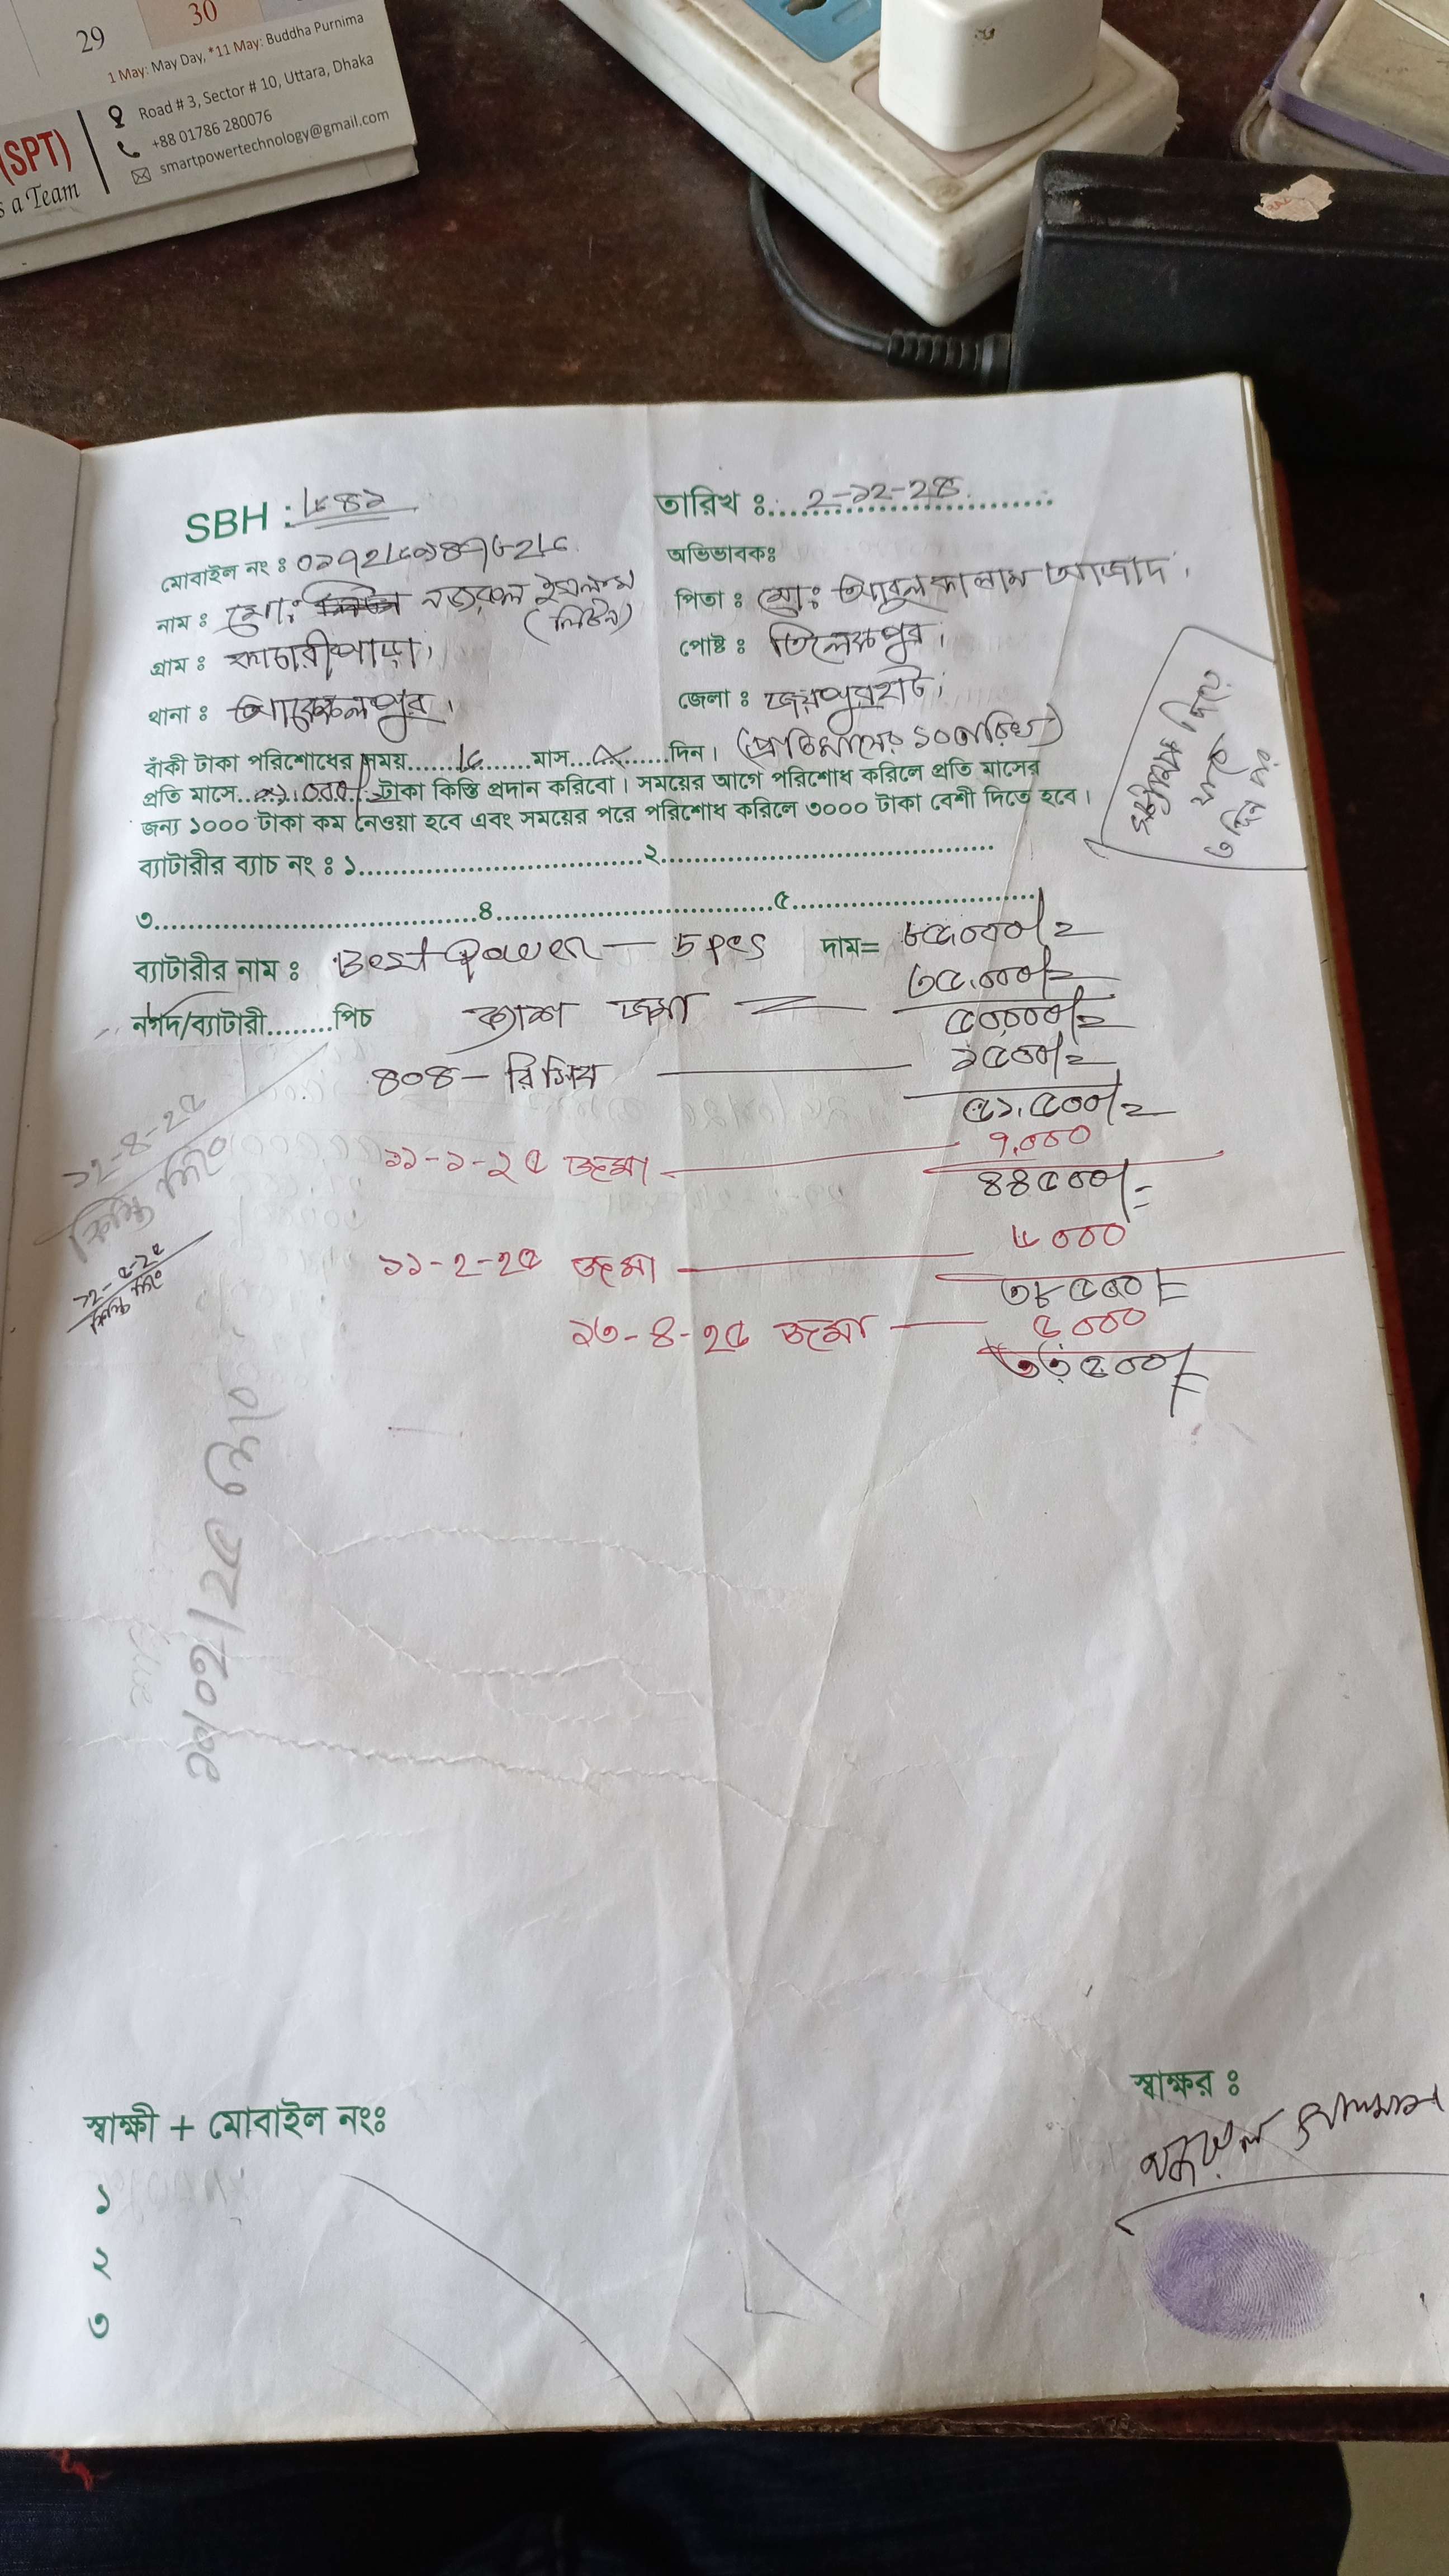 29
30
1 May: May Day, *11 May: Buddha Purnima
(SPT)
s a Team
Road # 3, Sector # 10, Uttara, Dhaka
+88 01786 280076
smartpowertechnology@gmail.com
SBH :
তারিখ ঃ 2-১2-28
মোবাইল নং ঃ
অভিভাবকঃ
নাম ঃ মোঃ নজরুল ইসলাম
(লিটন)
পিতা ঃ মোঃ আবুল কালাম আজাদ।
গ্রাম ঃ কাচারীপাড়া।
পোষ্ট ঃ তিলেকপুর।
থানা ঃ আক্কেলপুর।
জেলা ঃ জয়পুরহাট।
বাঁকী টাকা পরিশোধের সময়................মাস............দিন। (প্রতিমাসের ১০তারিখ)
প্রতি মাসে............টাকা কিস্তি প্রদান করিবো। সময়ের আগে পরিশোধ করিলে প্রতি মাসের
জন্য ১০০০ টাকা কম নেওয়া হবে এবং সময়ের পরে পরিশোধ করিলে ৩০০০ টাকা বেশী দিতে হবে।
ব্যাটারীর ব্যাচ নং ঃ ১........................................২..............................................
৩..............................................8.......................................৫...................................
ব্যাটারীর নাম ঃ Best Power — 5 pcs দাম= ৮৫০০০/=
৩৫,০০০/=
নগদ/ব্যাটারী........পিচ ক্যাশ জমা = ৫০,০০০/=
808 - রিসিব — ১৫০০/=
৫১,৫০০/=
১১-১-২৫ জমা — ৭,০০০
88৫০০/=
১১-২-২৫ জমা — ৬০০০
৩৮৫০০/=
১৩-8-২৫ জমা — ৫০০০
৩৩৫০০/=
১২-8-২৫
১২-৫-২৫
স্বাক্ষর ঃ
স্বাক্ষী + মোবাইল নংঃ
১
২
৩